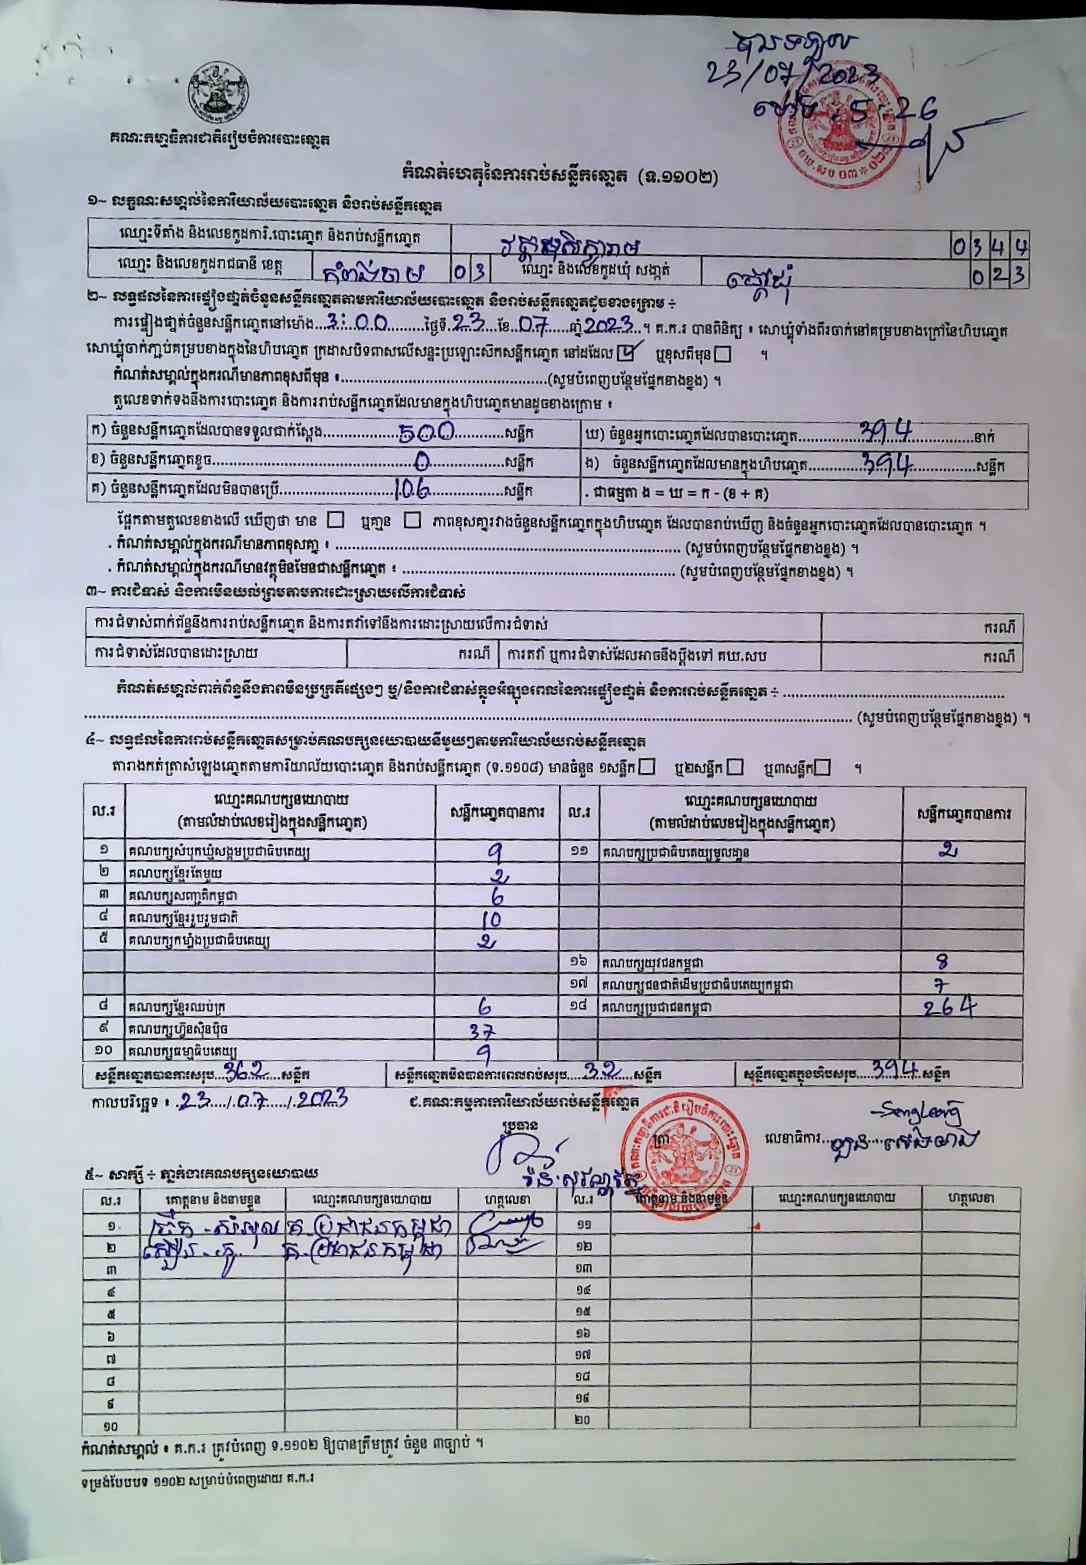 បានទទួល
23/07/2023
ម៉ោង 5:26
គណៈកម្មាធិការជាតិរៀបចំការបោះឆ្នោត
កំណត់ហេតុនៃការរាប់សន្លឹកឆ្នោត (ទ.១១០២)
១~ លក្ខណៈសម្គាល់នៃការិយាល័យបោះឆ្នោត និងរាប់សន្លឹកឆ្នោត
ឈ្មោះទីតាំង និងលេខកូដការិ.បោះឆ្នោត និងរាប់សន្លឹកឆ្នោត 0344
ឈ្មោះ និងលេខកូដរាជធានី ខេត្ត កំពង់ចាម 03 ឈ្មោះ និងលេខកូដឃុំ សង្កាត់ 023
២~ លទ្ធផលនៃការផ្ទៀងផ្ទាត់ចំនួនសន្លឹកឆ្នោតតាមការិយាល័យបោះឆ្នោត និងរាប់សន្លឹកឆ្នោតដូចខាងក្រោម ÷
ការផ្ទៀងផ្ទាត់ចំនួនសន្លឹកឆ្នោតនៅម៉ោង...3:00........ថ្ងៃទី.23...ខែ..07....ឆ្នាំ2023..។ គ.ក.រ បានពិនិត្យ ៖ សោឃ្លុំទាំងពីរចាក់នៅគម្របខាងក្រៅនៃហិបឆ្នោត
សោឃ្លុំចាក់ភ្ជាប់គម្របខាងក្នុងនៃហិបឆ្នោត ក្រដាសបិទពាសលើសន្ទះប្រឡោះស៊កសន្លឹកឆ្នោត នៅដដែល ☑ ឬខុសពីមុន ☐ ។
កំណត់សម្គាល់ក្នុងករណីមានភាពខុសពីមុន ៖..........................................(សូមបំពេញបន្ថែមផ្នែកខាងខ្នង) ។
តួលេខទាក់ទងនឹងការបោះឆ្នោត និងការរាប់សន្លឹកឆ្នោតដែលមានក្នុងហិបឆ្នោតមានដូចខាងក្រោម ៖
ក) ចំនួនសន្លឹកឆ្នោតដែលបានទទួលជាក់ស្តែង...............500...........សន្លឹក ឃ) ចំនួនអ្នកបោះឆ្នោតដែលបានបោះឆ្នោត.............394.............នាក់
ខ) ចំនួនសន្លឹកឆ្នោតខូច....................0................សន្លឹក ង) ចំនួនសន្លឹកឆ្នោតដែលមានក្នុងហិបឆ្នោត...........394............សន្លឹក
គ) ចំនួនសន្លឹកឆ្នោតដែលមិនបានប្រើ....................106................សន្លឹក . ជាធម្មតា ង = ឃ = ក - (ខ + គ)
ផ្អែកតាមតួលេខខាងលើ ឃើញថា មាន ☐ ឬគ្មាន ☐ ភាពខុសគ្នារវាងចំនួនសន្លឹកឆ្នោតក្នុងហិបឆ្នោត ដែលបានរាប់ឃើញ និងចំនួនអ្នកបោះឆ្នោតដែលបានបោះឆ្នោត ។
. កំណត់សម្គាល់ក្នុងករណីមានភាពខុសគ្នា ៖ ................................................ (សូមបំពេញបន្ថែមផ្នែកខាងខ្នង) ។
. កំណត់សម្គាល់ក្នុងករណីមានវត្ថុមិនមែនជាសន្លឹកឆ្នោត ៖ ........................................ (សូមបំពេញបន្ថែមផ្នែកខាងខ្នង) ។
៣~ ការជំទាស់ និងការមិនយល់ព្រមតាមការដោះស្រាយលើការជំទាស់
ការជំទាស់ពាក់ព័ន្ធនឹងការរាប់សន្លឹកឆ្នោត និងការតវ៉ាទៅនឹងការដោះស្រាយលើការជំទាស់ ករណី
ការជំទាស់ដែលបានដោះស្រាយ ករណី ការតវ៉ា ឬការជំទាស់ដែលអាចនឹងប្តឹងទៅ គឃ.សប ករណី
កំណត់សម្គាល់ពាក់ព័ន្ធនឹងភាពមិនប្រក្រតីផ្សេងៗ ឬ/និងការជំទាស់ក្នុងអំឡុងពេលនៃការផ្ទៀងផ្ទាត់ និងការរាប់សន្លឹកឆ្នោត ÷ ................................
................................................................ (សូមបំពេញបន្ថែមផ្នែកខាងខ្នង) ។
៤~ លទ្ធផលនៃការរាប់សន្លឹកឆ្នោតសម្រាប់គណបក្សនយោបាយនីមួយៗតាមការិយាល័យរាប់សន្លឹកឆ្នោត
តារាងកត់ត្រាសំឡេងឆ្នោតតាមការិយាល័យបោះឆ្នោត និងរាប់សន្លឹកឆ្នោត (ទ.១១០៨) មានចំនួន ១សន្លឹក ☐ ឬ២សន្លឹក ☐ ឬ៣សន្លឹក ☐ ។
ល.រ ឈ្មោះគណបក្សនយោបាយ (តាមលំដាប់លេខរៀងក្នុងសន្លឹកឆ្នោត) សន្លឹកឆ្នោតបានការ ល.រ ឈ្មោះគណបក្សនយោបាយ (តាមលំដាប់លេខរៀងក្នុងសន្លឹកឆ្នោត) សន្លឹកឆ្នោតបានការ
១ គណបក្សសំបុកឃ្មុំសង្គមប្រជាធិបតេយ្យ 9 ១១ គណបក្សប្រជាធិបតេយ្យមូលដ្ឋាន 2
២ គណបក្សខ្មែរតែមួយ 2
៣ គណបក្សសញ្ជាតិកម្ពុជា 6
៤ គណបក្សខ្មែររួបរួមជាតិ 10
៥ គណបក្សកម្លាំងប្រជាធិបតេយ្យ 2
១៦ គណបក្សយុវជនកម្ពុជា 8
១៧ គណបក្សជនជាតិដើមប្រជាធិបតេយ្យកម្ពុជា 7
៨ គណបក្សខ្មែរឈប់ក្រ 6 ១៨ គណបក្សប្រជាជនកម្ពុជា 264
៩ គណបក្សហ្វ៊ុនស៊ិនប៉ិច 37
១០ គណបក្សធម្មាធិបតេយ្យ 9
សន្លឹកឆ្នោតបានការសរុប...362.....សន្លឹក សន្លឹកឆ្នោតមិនបានការពេលរាប់សរុប....32.....សន្លឹក សន្លឹកឆ្នោតក្នុងហិបសរុប....394....សន្លឹក
កាលបរិច្ឆេទ ៖ .23..../.07...../.2023 ជ.គណៈកម្មការការិយាល័យរាប់សន្លឹកឆ្នោត
ប្រធាន ត្រា លេខាធិការ
៥~ សាក្សី ÷ ភ្នាក់ងារគណបក្សនយោបាយ
ល.រ គោត្តនាម និងនាមខ្លួន ឈ្មោះគណបក្សនយោបាយ ហត្ថលេខា ល.រ គោត្តនាម និងនាមខ្លួន ឈ្មោះគណបក្សនយោបាយ ហត្ថលេខា
១ គ.ប្រជាជនកម្ពុជា ១១
២ គ.ប្រជាជនកម្ពុជា ១២
៣ ១៣
៤ ១៤
៥ ១៥
៦ ១៦
៧ ១៧
៨ ១៨
៩ ១៩
១០ ២០
កំណត់សម្គាល់ ៖ គ.ក.រ ត្រូវបំពេញ ទ.១១០២ ឱ្យបានត្រឹមត្រូវ ចំនួន ៣ច្បាប់ ។
ទម្រង់បែបបទ ១១០២ សម្រាប់បំពេញដោយ គ.ក.រ